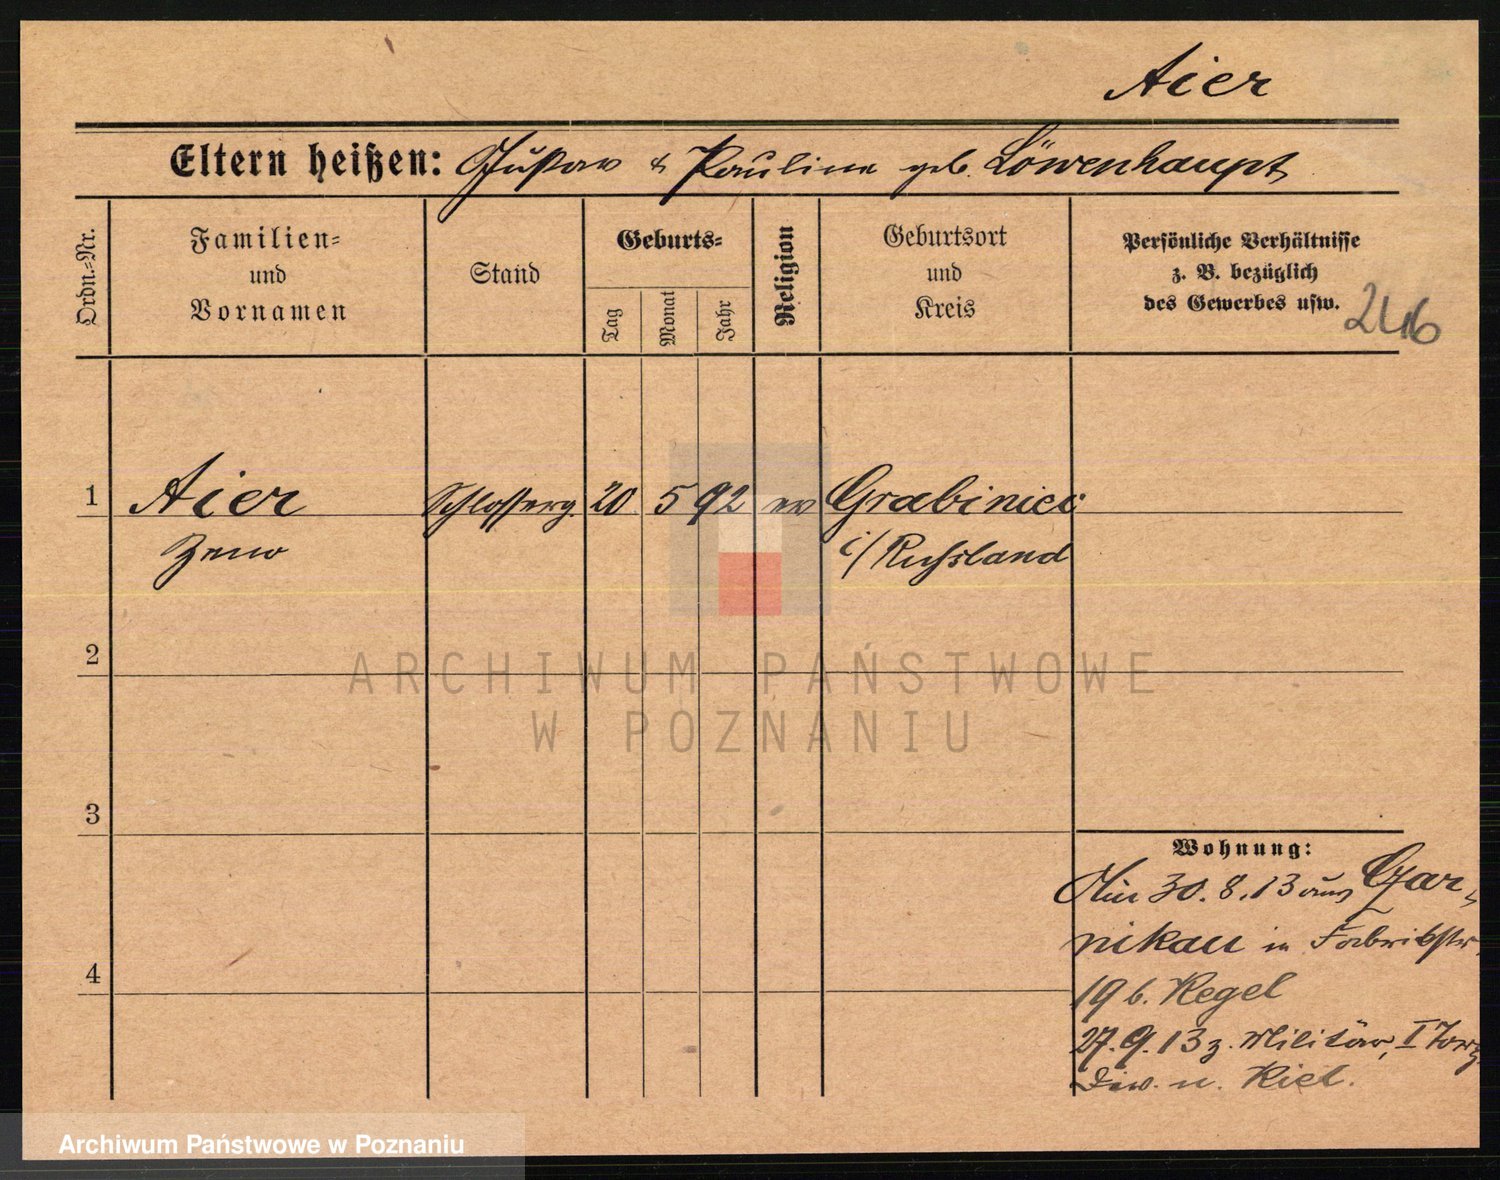 Aier
Eltern heißen: Gustav & Pauline geb. Löwenhaupt
Ordn.=Nr.
Familien=
und
Vornamen
Stand
Geburts=
Tag
Monat
Jahr
Religion
Geburtsort
und
Kreis
Persönliche Verhältnisse
z. B. bezüglich
des Gewerbes usw.
1 Aier Schlosserg. 20 5 92 ev Grabiniec
Zeno i/Russland
2
ARCHIWUM PAŃSTWOWE
W POZNANIU
3
Wohnung:
30.8.13 aus Czar-
nikau in Fabrikstr.
4
19 b. Kegel
27.9.13 z. Militär, I Torp.
Div. n. Kiel.
Archiwum Państwowe w Poznaniu